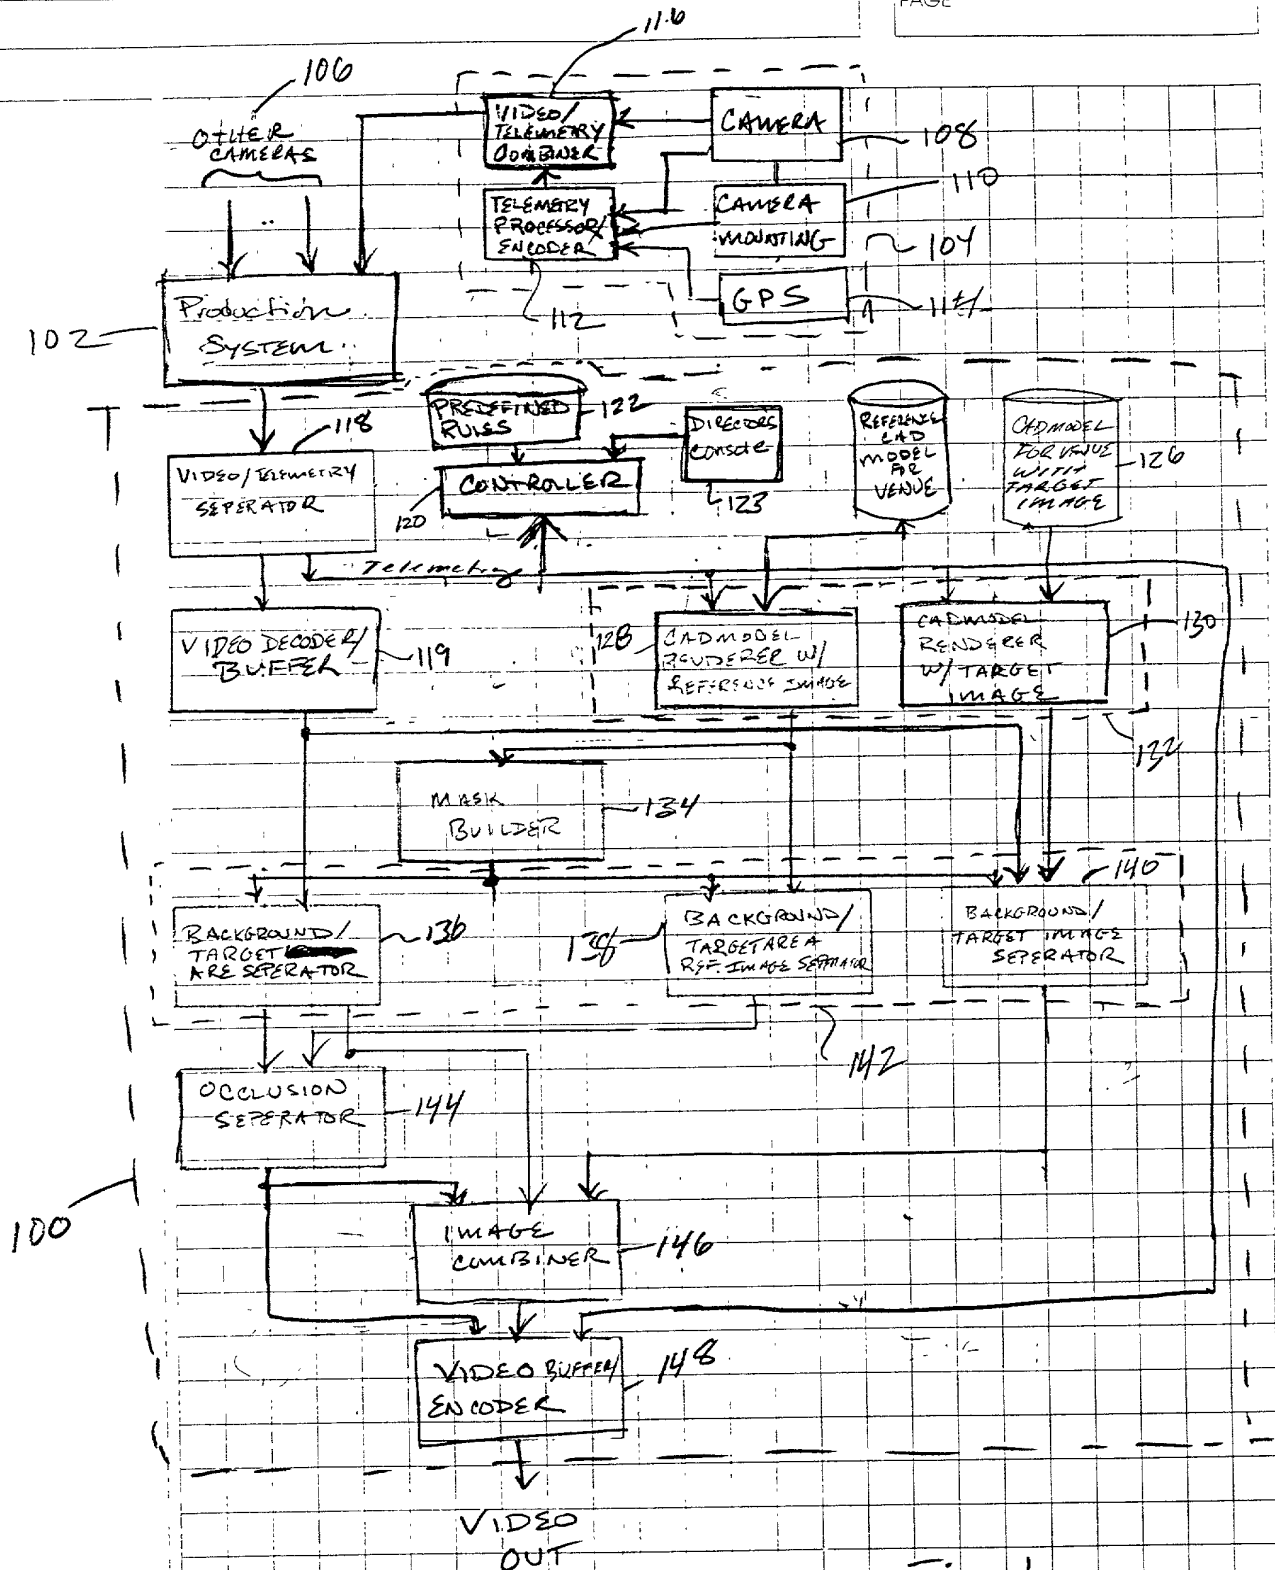 PAGE
116
106
OTHER
CAMERAS
VIDEO/
TELEMETRY
COMBINER
CAMERA
108
TELEMETRY
PROCESSOR/
ENCODER
CAMERA
MOUNTING
110
104
GPS
114
112
Production
SYSTEM
102
118
VIDEO/TELEMETRY
SEPERATOR
PREDEFINED
RULES
122
DIRECTORS
console
123
CONTROLLER
120
REFERENCE
CAD
MODEL
FOR
VENUE
CAD MODEL
FOR VENUE
WITH
TARGET
IMAGE
126
Telemetry
VIDEO DECODER/
BUFFER
119
128
CAD MODEL
RENDERER W/
REFERENCE IMAGE
CAD MODEL
RENDERER
W/ TARGET
IMAGE
130
132
MASK
BUILDER
134
140
BACKGROUND/
TARGET
ARE SEPERATOR
136
138
BACKGROUND/
TARGET AREA
REF. IMAGE SEPERATOR
BACKGROUND/
TARGET IMAGE
SEPERATOR
142
OCCLUSION
SEPERATOR
144
100
IMAGE
COMBINER
146
VIDEO BUFFER/
ENCODER
148
VIDEO
OUT